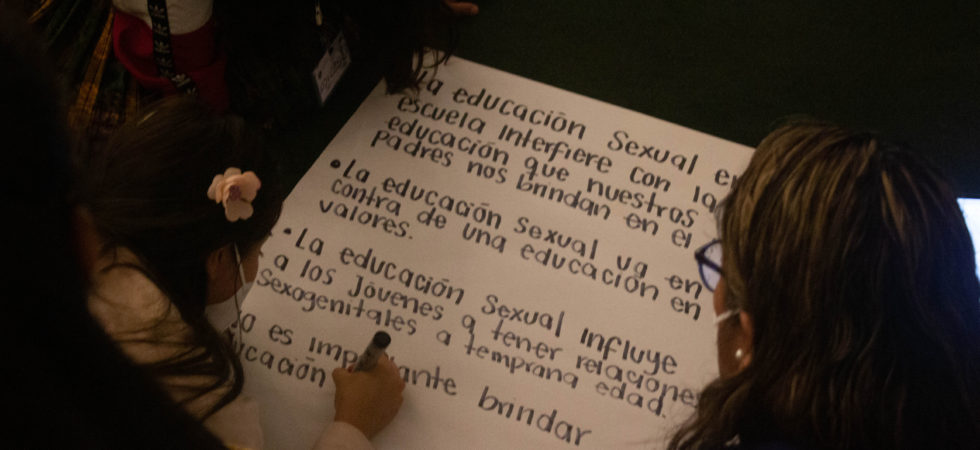 La educación Sexual en
escuela interfiere con la
educación que nuestros
padres nos brindan en el
•La educación Sexual va en
contra de una educación en
valores.
•La educación Sexual influye
a los Jóvenes a tener relaciones
Sexogenitales a temprana edad.
es brindar